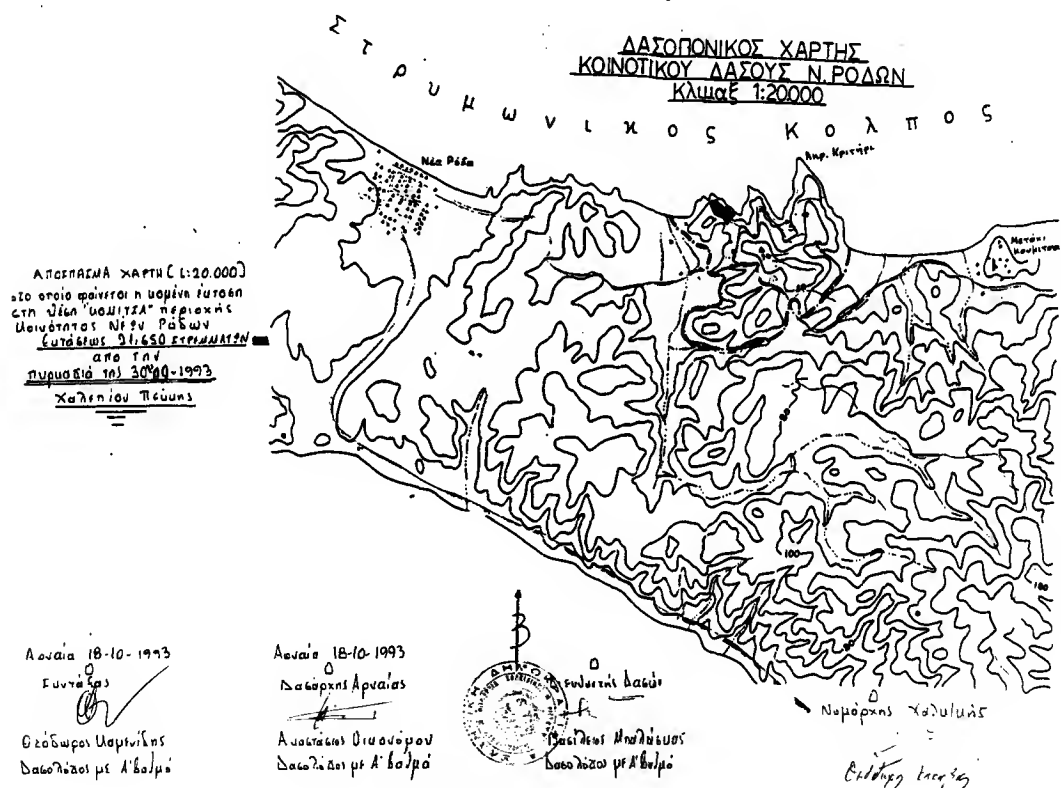 ΣΤΡΥΜΩΝΙΚΟΣ ΚΟΛΠΟΣ
ΔΑΣΟΠΟΝΙΚΟΣ ΧΑΡΤΗΣ
ΚΟΙΝΟΤΙΚΟΥ ΔΑΣΟΥΣ Ν.ΡΟΔΩΝ
Κλιμαξ 1:20.000
Νέα Ρόδα
Ακρ. Κριτήρι
Μετόχι
Κουμίτσα
ΑΠΟΣΠΑΣΜΑ ΧΑΡΤΗ (1:20.000)
στο οποίο φαίνεται η καμένη έκταση
στη θέση "ΚΟΜΙΤΣΑ" περιοχής
Κοινότητος Νέων Ρόδων
Εκτάσεως 21,650 ΣΤΡΕΜΜΑΤΩΝ
από την
πυρκαδιά της -1993
Χαλεπίου Πεύκης
100
100
80
Β
Αρναία 18-10-1993
Ο
Συντάξας
Θεόδωρος Καμενίδης
Δασολόγος με Α' βαθμό
Αρναία 18-10-1993
Ο
Δασάρχης Αρναίας
Αναστάσιος Οικονόμου
Δασολόγος με Α' βαθμό
Ο
Δασών
Βασίλειος
Δασολόγος με Α' βαθμό
Ο
Νομάρχης Χαλκιδικής